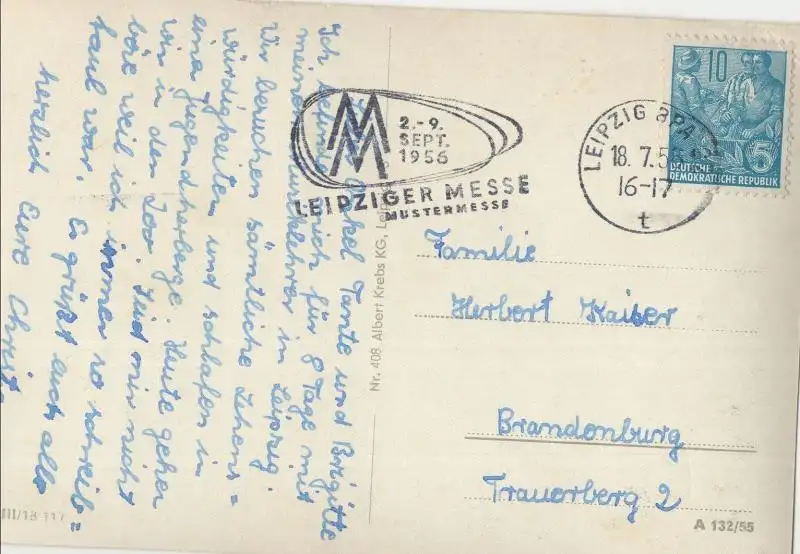 Onkel Tante und Brigitte
Ich befinde mich für 8 Tage mit
meinem in Leipzig.
Wir besuchen sämtliche Sehens=
würdigkeiten und schlafen in
eine Jugendherberge. Heute gehen
wir in den Zoo. Seid mir nicht
böse weil ich immer so schreib=
faul war. Es grüßt euch alle
herzlich Eure
MM
2.-9.
SEPT.
1956
LEIPZIGER MESSE
MUSTERMESSE
LEIPZIG BPA
18. 7. 5
16-17
t
10
5
DEUTSCHE
DEMOKRATISCHE REPUBLIK
Nr. 408 Albert Krebs KG,
Familie
Herbert Kaiser
Brandenburg
Trauerberg 2
III/18 117
A 132/55